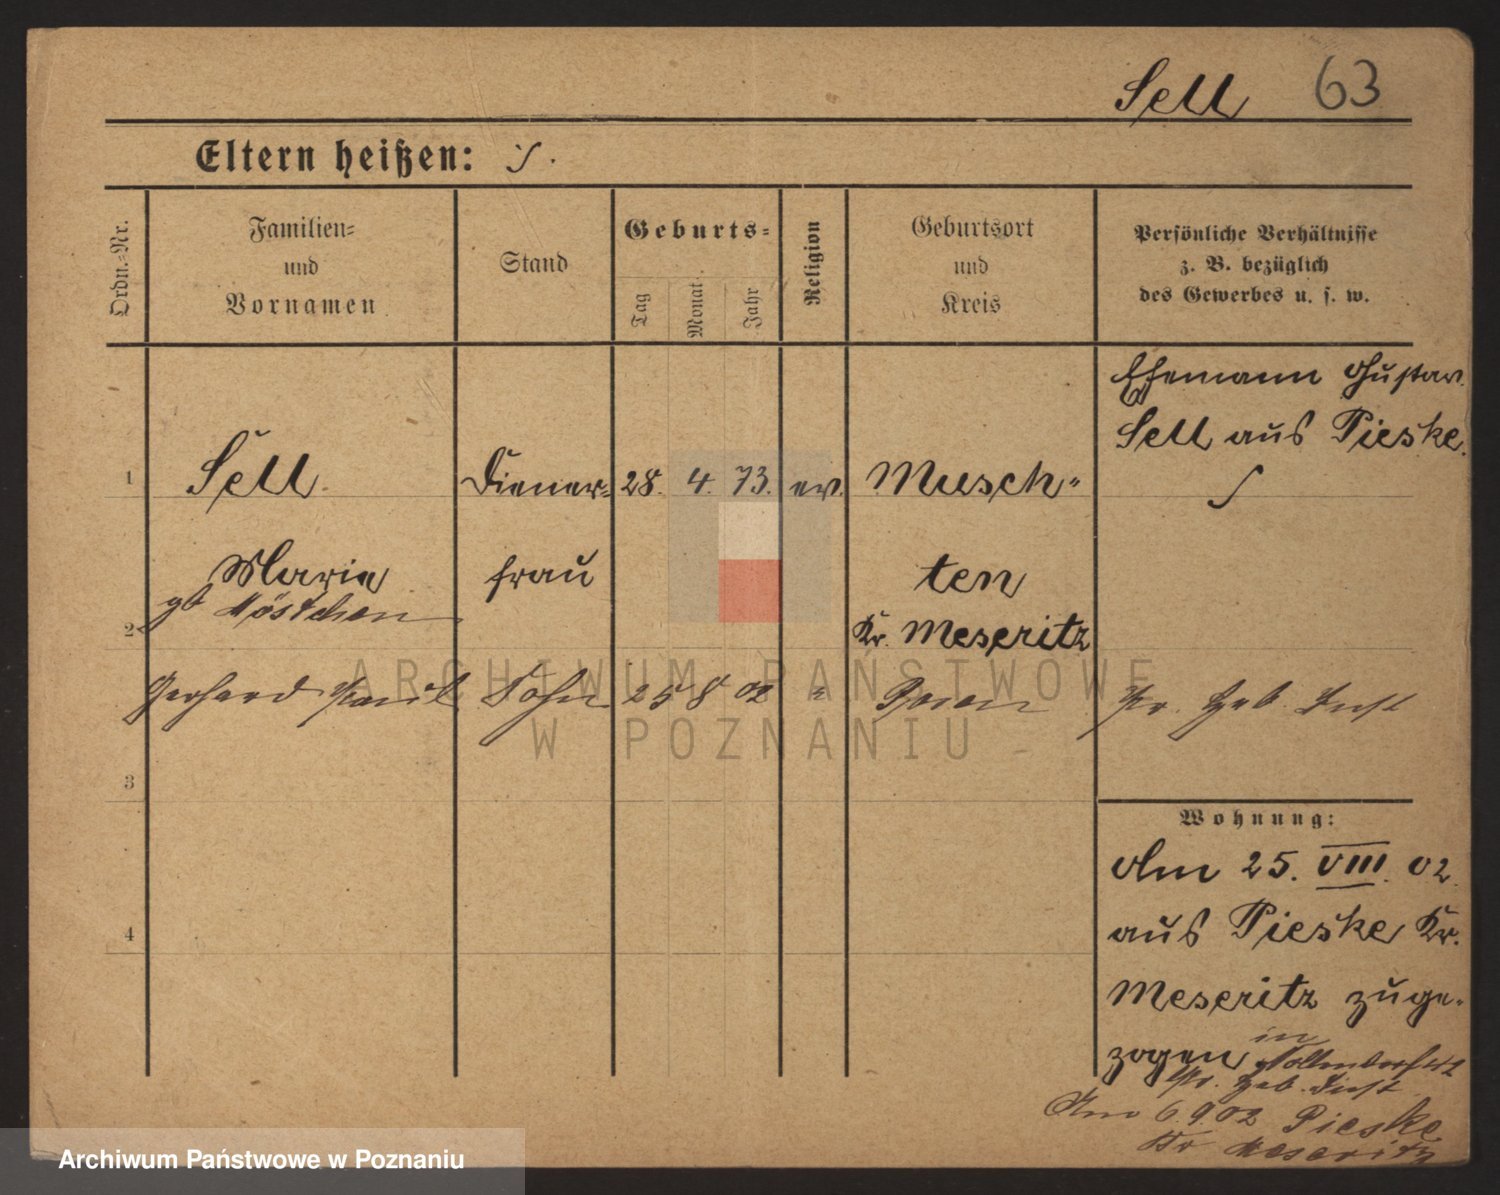 Sell 63
Eltern heißen:
Ordn.-Nr.
Familien-
und
Vornamen
Stand
Geburts-
Tag
Monat
Jahr
Religion
Geburtsort
und
Kreis
Persönliche Verhältnisse
z. B. bezüglich
des Gewerbes u. s. w.
Ehemann Gustav
Sell aus Pieske.
1 Sell Diener- 28. 4. 73. ev. Musch-
Marie frau ten
gb
2 Kr. Meseritz
Gerhard Paul Sohn 25 8 02 " Posen Pr. Heb. Inst
3
4
Wohnung:
Am 25. VIII. 02.
aus Pieske Kr.
Meseritz zuge-
zogen in
Pr. Heb. Inst
6.9.02 Pieske
Kr Meseritz
ARCHIWUM PAŃSTWOWE
W POZNANIU
Archiwum Państwowe w Poznaniu